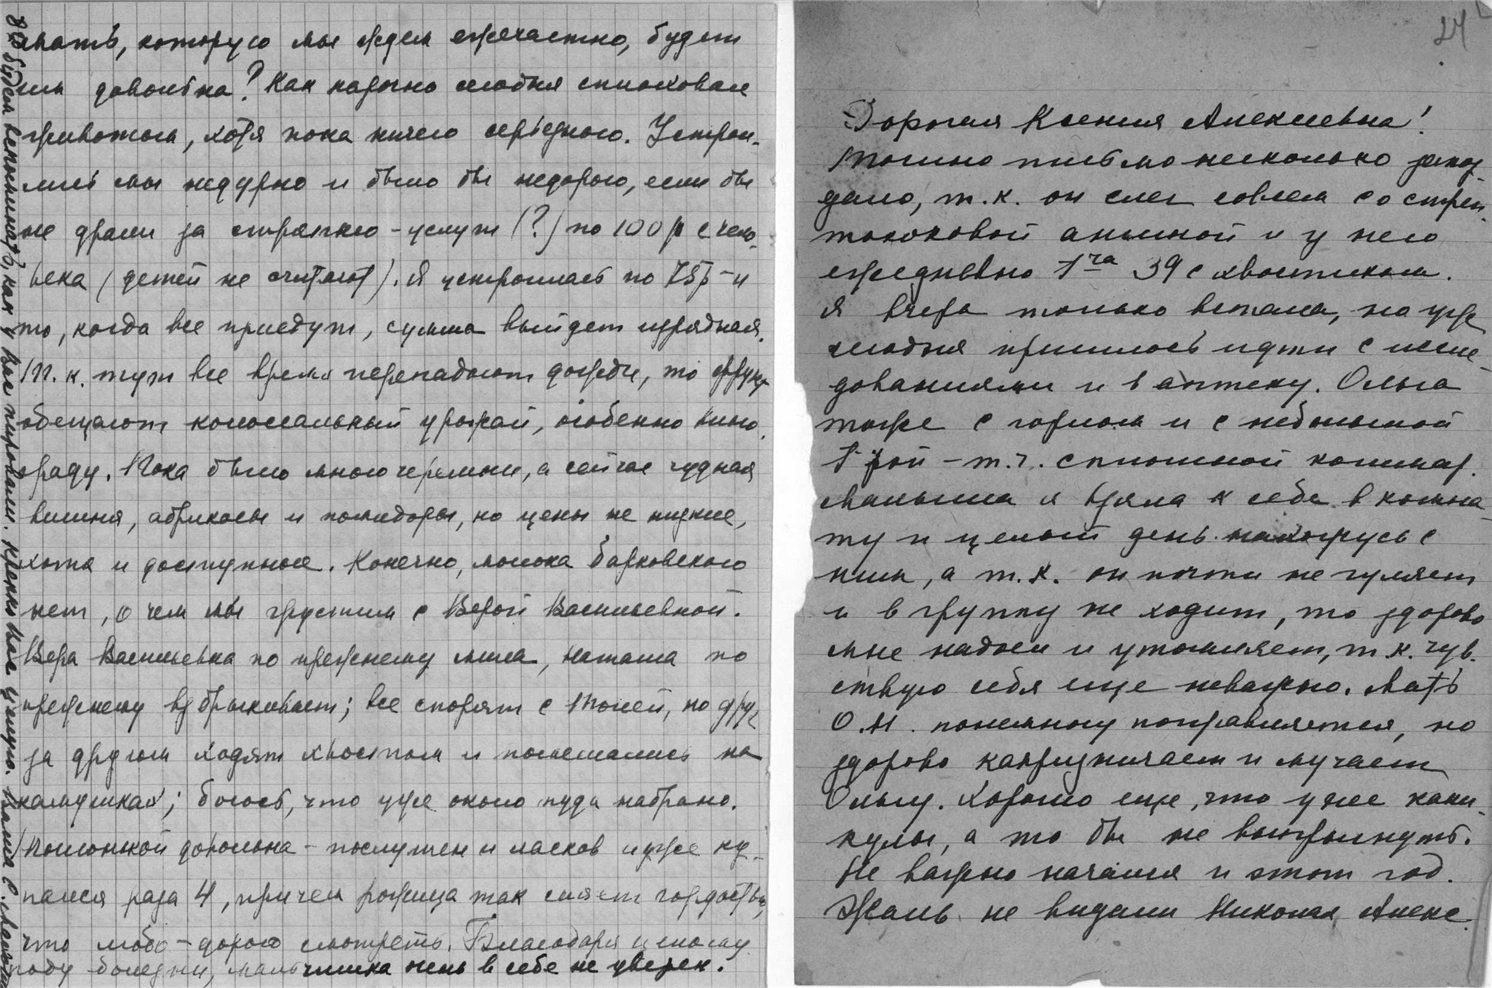 мать, которую мы ждем ежечасно, будет
ли довольна? Как нарочно сегодня сплоховал
животом, хотя пока ничего серьезного. Устрои-
лись мы недурно и было бы недорого, если бы
не драли за стряпню-услуги (?) по 100 р с чело-
века (детей не считают). Я устроилась по 75 р - и
то, когда все приедут, сумма выйдет изрядная.
Т.к. тут все время перепадают дожди, то фрукт
обещают колоссальный урожай, особенно вино-
граду. Пока было много черешни, а сейчас чудная
вишня, абрикосы и помидоры, но цены не низкие,
хотя и доступные. Конечно, молока Барковского
нет, о чем мы грустим с Верой Васильевной.
Вера Васильевна по прежнему мила, Наташа по
прежнему взбрыкивает; все спорят с Толей, но друг
за другом ходят хвостом и помешались на
камушках; боюсь, что уже около пуда набрано.
Толюшкой довольна - послушен и ласков и уже ку-
пался раза 4, причем рожица так сияет гордостью,
что любо-дорого смотреть. Благодаря
году болезни, мальчишка очень в себе не уверен.
будем вспоминать, как у Вас пировали. Крепко Вас целую.
24
Дорогая Ксения Алексеевна!
Толино письмо несколько запоз-
дало, т.к. он слег совсем со стреп-
тококковой ангиной и у него
ежедневно t-ра 39 с хвостиком.
Я вчера только встала, но уже
сегодня пришлось идти с иссле-
дованиями и в аптеку. Ольга
тоже с горлом и с небольшой
t-рой - т.ч. сплошной кошмар.
Малыша я взяла к себе в комна-
ту и целый день нахожусь с
ним, а т.к. он почти не гуляет
и в группу не ходит, то здорово
мне надоел и утомляет, т.к. чув-
ствую себя еще неважно. Мать
О.Н. понемногу поправляется, но
здорово капризничает и мучает
Ольгу. Хорошо еще, что уже кани-
кулы, а то бы не вытянуть.
Не важно начался и этот год.
Жаль не видали Николая Алекс.